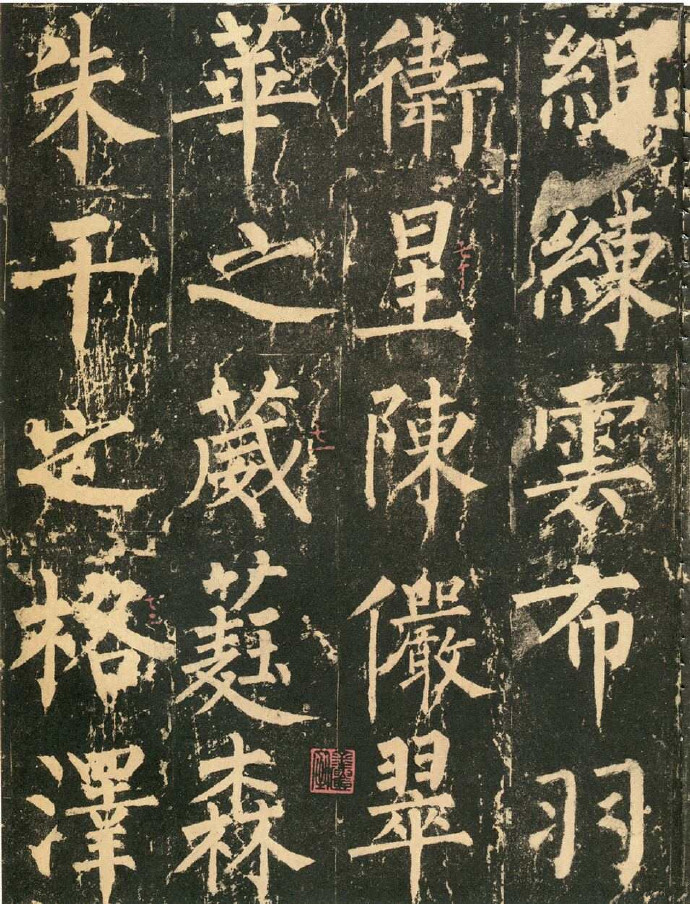 組練雲布羽
衛星陳儼翠
華之葳蕤森
朱干之格澤